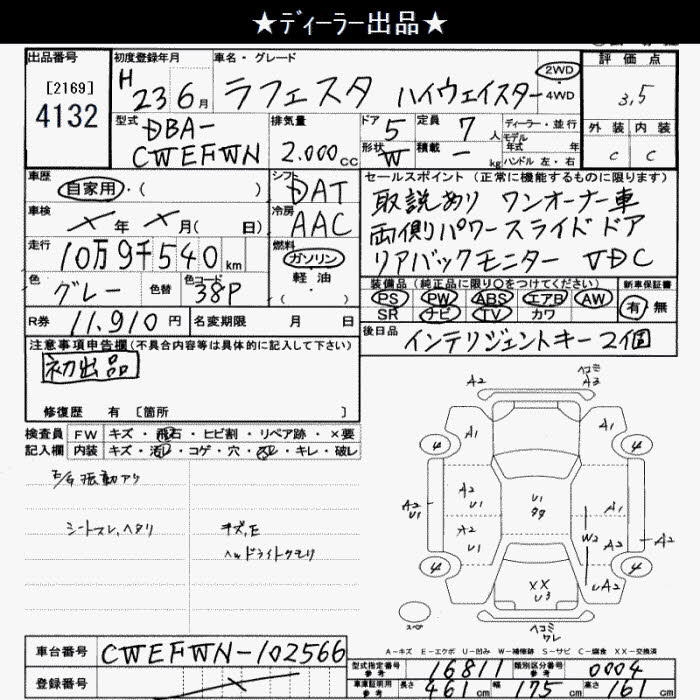 ★ディーラー出品★
出品番号
[2169]
4132
初度登録年月
H 23 6月
車名・グレード
ラフェスタ ハイウェイスター
2WD
4WD
評価点
3.5
外装 内装
C C
型式
DBA-
CWEFWN
排気量
2.000cc
ドア 5
形状 W
定員 7人
積載 - kg
ディーラー・並行
モデル
年式 年
ハンドル 左・右
車歴
自家用・( )
シフト
DAT
車検
× 年 × 月( 日)
冷房
AAC
走行
10万9千540km
燃料
ガソリン
軽油
( )
色
グレー
色替
色コード
38P
R券 11,910円
名変期限 月 日
セールスポイント(正常に機能するものに限ります)
取説あり ワンオーナー車
両側パワースライドドア
リアバックモニター VDC
装備品(純正品に限り○をつけてください)
PS PW ABS エアB AW
SR ナビ TV カワ
新車保証書
有 無
後日品
インテリジェントキー2個
注意事項申告欄(不具合内容等は具体的に記入して下さい)
初出品
修復歴 有 [箇所 ]
検査員 FW キズ・飛石・ヒビ割・リペア跡・×要
記入欄 内装 キズ・汚レ・コゲ・穴・スレ・キレ・破レ
E/G振動アリ
シートスレ,ヘタリ
キズ,E
ヘッドライトクモリ
A2
ヘコミ
A3
A1
A1
4
4
A2
U1
A2
U1
U1
A1
A2
U1
W2
A2
A2
4
4
XX
U3
UA2
スペア
ヘコミ
ワレ
A-キズ E-エクボ U-凹み W-補修跡 S-サビ C-腐食 XX-交換済
車台番号 CWEFWN-102566
登録番号
型式指定番号
参考
16811
類別区分番号
参考
0004
車庫証明用
参考
長さ 461cm 幅 175cm 高さ 161cm